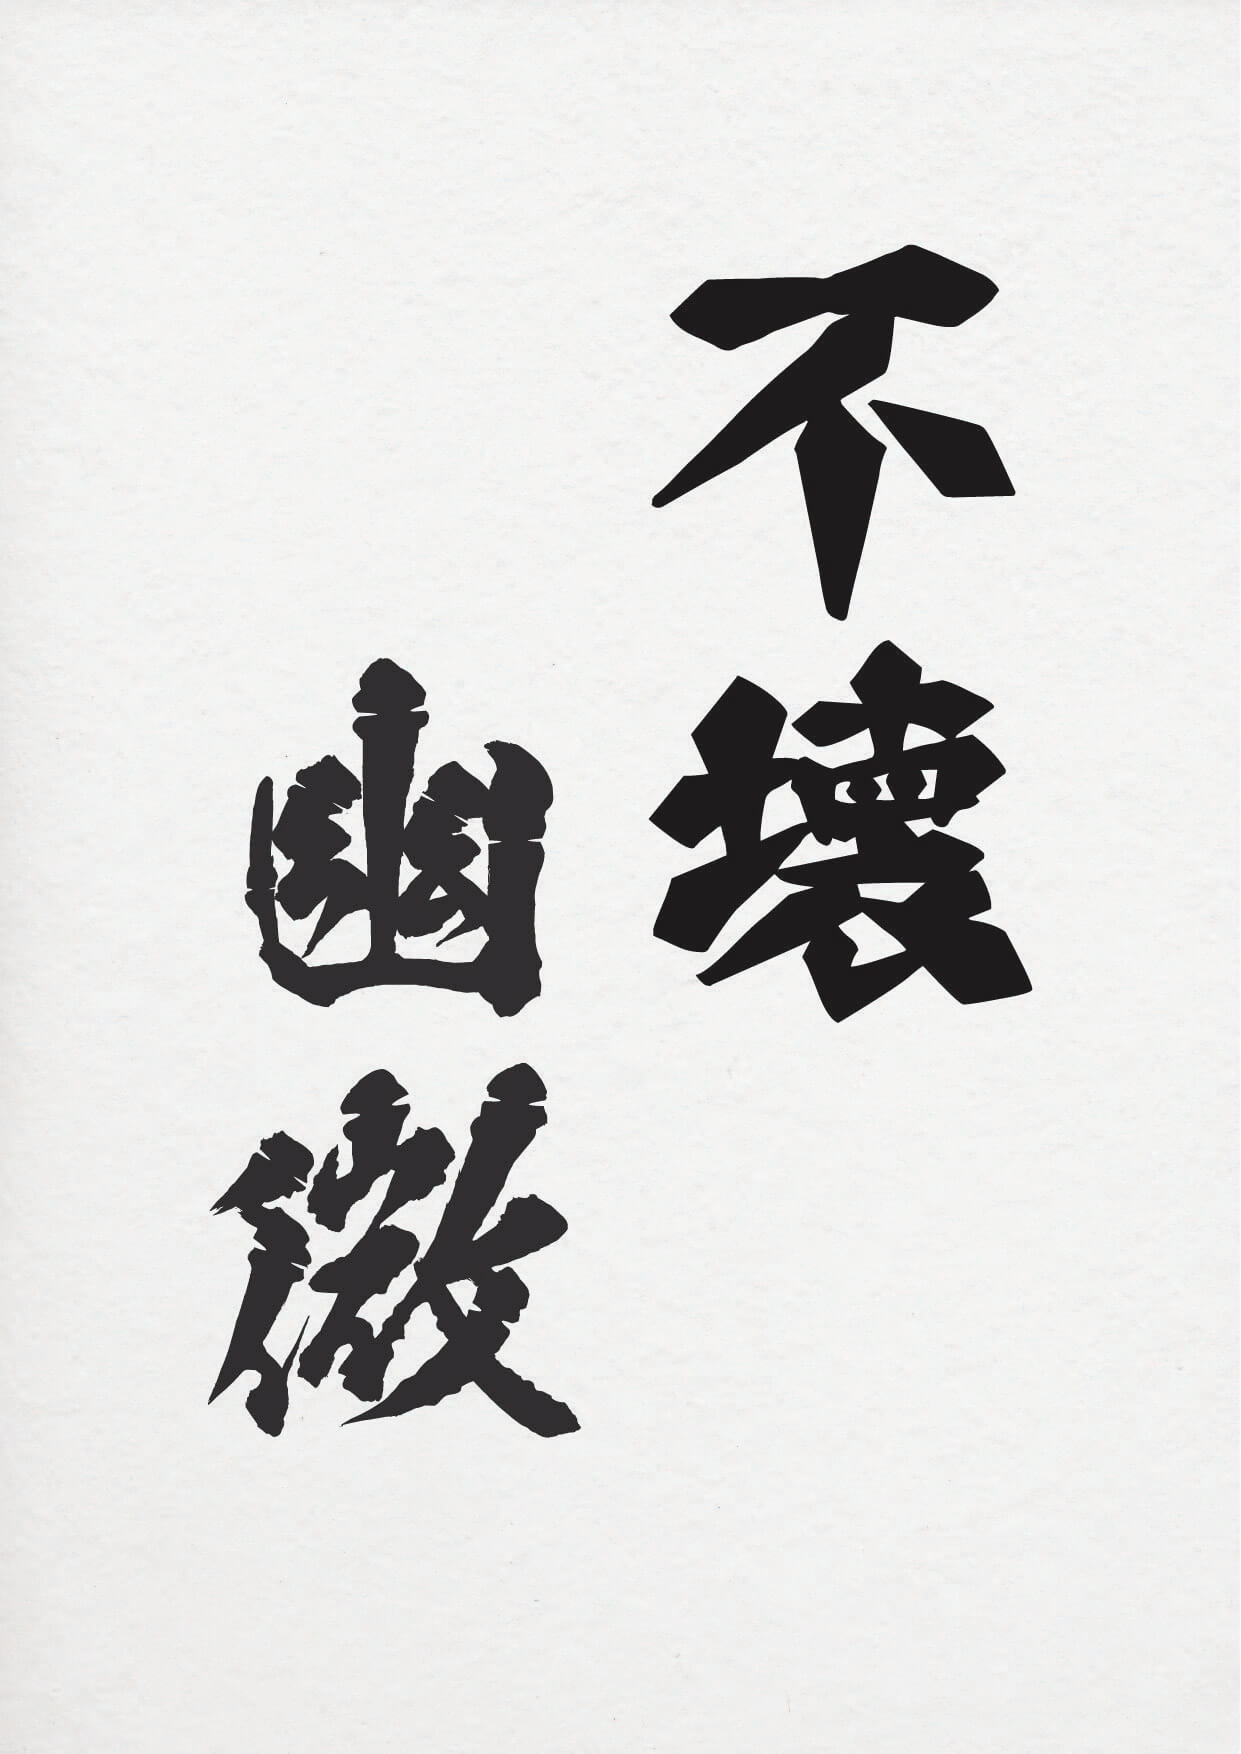 不壊
幽微